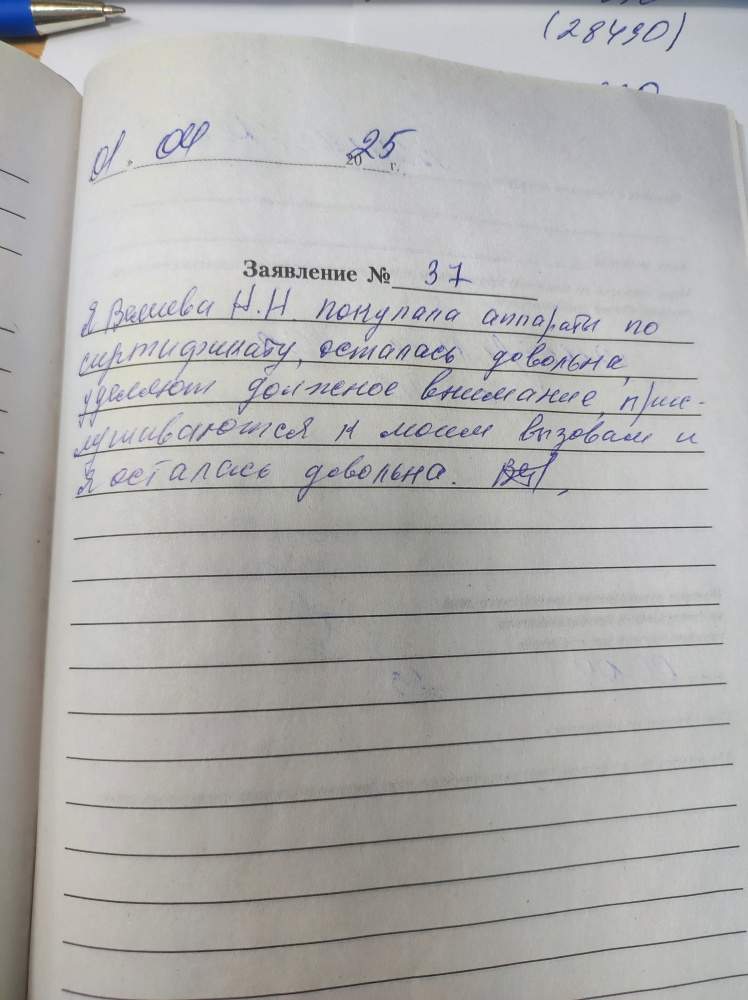 (28490)
01. 04 2025 г.
Заявление № 37
Я Валиева Н.Н. покупала аппараты по
сиртификату, осталась довольна,
уделяют должное внимание, прис-
лушиваются к моим вызовам и
я осталась довольна.